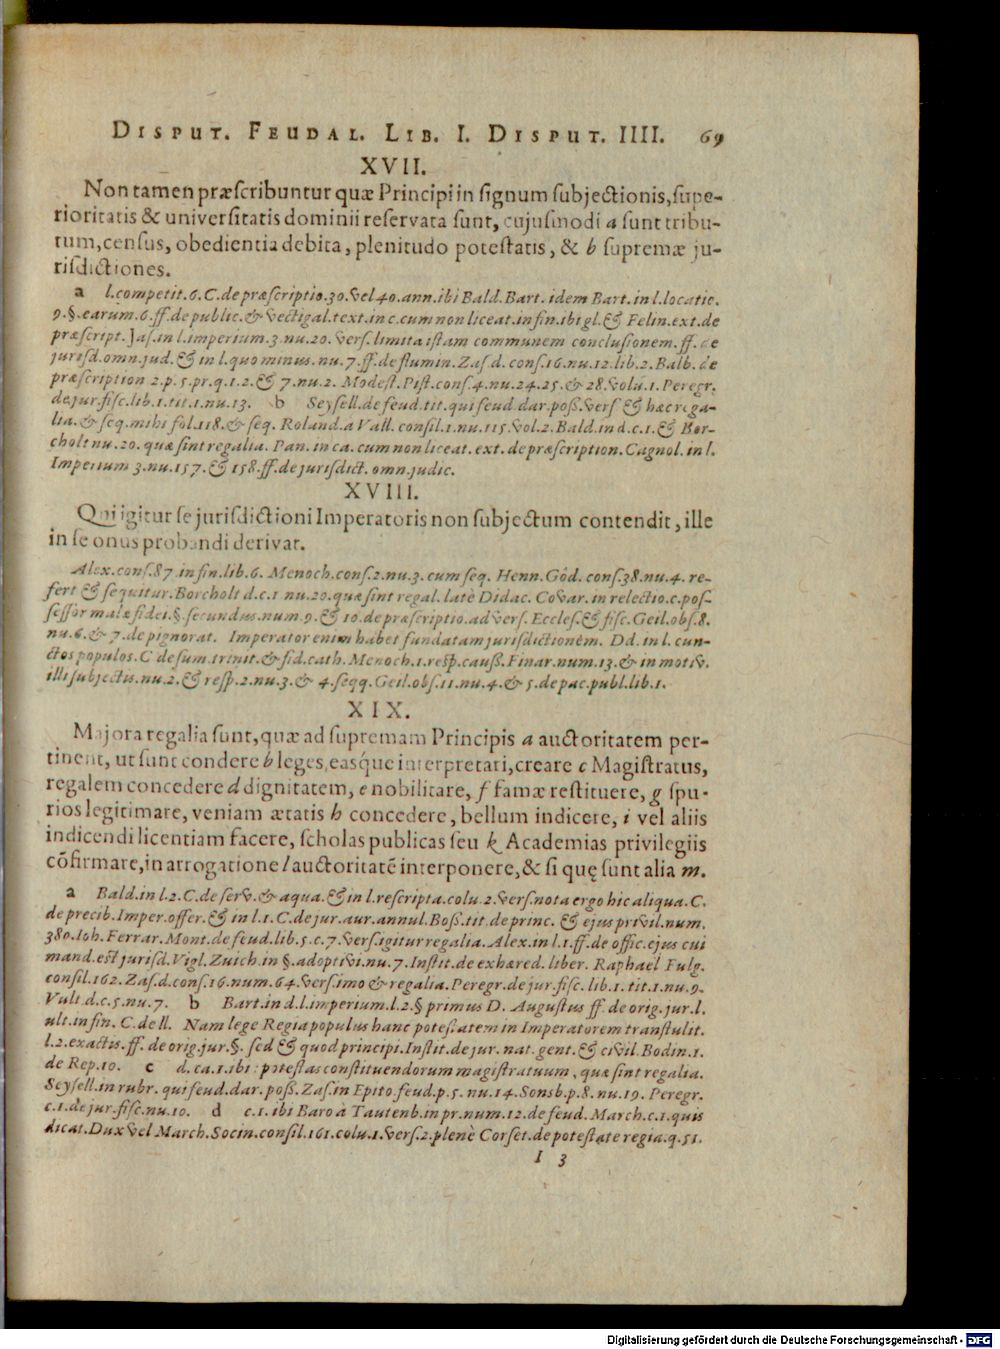 DISPUT. FEUDAL. LIB. I. DISPUT. IIII. 69
XVII.
Non tamen præſcribuntur quæ Principi in ſignum ſubjectionis, ſupe-
rioritatis & univerſitatis dominii reſervata ſunt, cujuſmodi a ſunt tribu-
tum, cenſus, obedientia debita, plenitudo poteſtatis, & b ſupremæ ju-
riſdictiones.
a l. competit. 6. C. de præſcriptio. 30. vel 40. ann. ibi Bald. Bart. idem Bart. in l. locatic.
9. §. earum. 6. ff. de public. & vectigal. text. in c. cum non liceat. in fin. ibi gl. & Felin. ext. de
præſcript. Jaſ. in l. imperium. 3. nu. 20. verſ. limita iſtam communem concluſionem. ff. de
juriſd. omn. jud. & in l. quo minus. nu. 7. ff. de flumin. Zaſ d. conſ. 16. nu. 12. lib. 2. Balb. de
præſcription 2. p. 5. pr. q. 1. 2. & 7. nu. 2. Modeſt. Piſt. conſ. 4. nu. 24. 25. & 28. volu. 1. Peregr.
de jur. fiſc. lib. 1. tit. 1. nu. 13. b Seyſell. de feud. tit. qui feud. dar. poß. verſ & hæc rega-
lia. & ſeq. mihi fol. 118. & ſeq. Roland. a Vall. conſil. 1. nu. 115. vol. 2. Bald. in d. c. 1. & Bor-
cholt nu. 20. quæ ſint regalia. Pan. in ca. cum non liceat. ext. de præſcription. Cagnol. in l.
Imperium 3. nu. 157. & 158. ff. de juriſdict. omn. judic.
XVIII.
Qui igitur ſe jurisdictioni Imperatoris non ſubjectum contendit, ille
in ſe onus probandi derivat.
Alex. conſ. 87. in fin. lib. 6. Menoch. conſ. 2. nu. 3. cum ſeq. Henn. Göd. conſ. 38. nu. 4. re-
fert & ſequitur. Borcholt d. c. 1 nu. 20. quæ ſint regal. latè Didac. Covar. in relectio. c. poſ-
ſeſſor malæ fidei. §. ſecundus. num. 9. & 10. de præſcriptio. adverſ. Eccleſ. & fiſc. Geil. obſ. 8.
nu. 6. & 7. de pignorat. Imperator enim habet fundatam jurisdictionem. Dd. in l. cun-
ctos populos. C de ſum. trinit. & fid. cath. Menoch. 1. reſp. cauß. Finar. num. 13. & in motiv.
illi ſubjectis. nu. 2. & reſp. 2. nu. 3. & 4. ſeqq. Geil. obſ. 11. nu. 4. & 5. de pac. publ. lib. 1.
XIX.
Majora regalia ſunt, quæ ad ſupremam Principis a auctoritatem per-
tinent, ut ſunt condere b leges, easque interpretari, creare c Magiſtratus,
regalem concedere d dignitatem, e nobilitare, f famæ reſtituere, g ſpu-
rios legitimare, veniam ætatis h concedere, bellum indicere, i vel aliis
indicendi licentiam facere, ſcholas publicas ſeu k Academias privilegiis
cõfirmare, in arrogatione l auctoritatẽ interponere, & ſi quę ſunt alia m.
a Bald. in l. 2. C. de ſerv. & aqua. & in l. reſcripta. colu. 2. verſ. nota ergo hic aliqua. C.
de precib. Imper. offer. & in l. 1. C. de jur. aur. annul. Boß. tit. de princ. & ejus privil. num.
380. Ioh. Ferrar. Mont. de feud. lib. 5. c. 7. verſ. igitur regalia. Alex. in l. 1. ff. de offic. ejus cui
mand. eſt juriſd. Vigl. Zuich. in §. adoptivi. nu. 7. Inſtit. de exhæred. liber. Raphael Fulg.
conſil. 162. Zaſ. d. conſ. 16. num. 64. verſ. imo & regalia. Peregr. de jur. fiſc. lib. 1. tit. 1. nu. 9.
Vult d. c. 5. nu. 7. b Bart. in d. l. imperium. l. 2. § primus D. Auguſtus ff. de orig. jur. l.
ult. in fin. C. de ll. Nam lege Regia populus hanc poteſtatem in Imperatorem tranſtulit.
l. 2. exactis. ff. de orig. jur. §. ſed & quod principi. Inſtit. de jur. nat. gent. & civil. Bodin. 1.
de Rep. 10. c d. ca. 1. ibi: poteſtas conſtituendorum magiſtratuum, quæ ſint regalia.
Seyſell. in rubr. qui feud. dar. poß. Zaſ. in Epito. feud. p. 5. nu. 14. Sonsb. p. 8. nu. 19. Peregr.
c. 1. de jur. fiſc. nu. 10. d c. 1. ibi Baro à Tautenb. in pr. num. 12. de feud. March. c. 1. quis
dicat. Dux vel March. Socin. conſil. 161. colu. 1. verſ. 2. plenè Corſet. de poteſtate regia. q. 51.
I 3
Digitalisierung gefördert durch die Deutsche Forschungsgemeinschaft - DFG